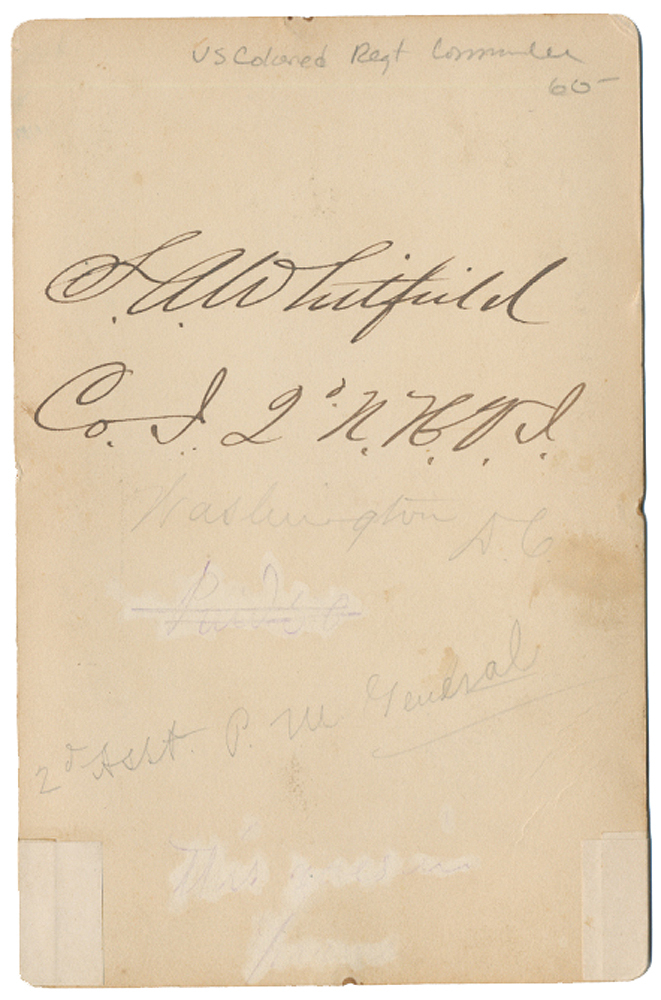 US Colored Regt Commander
60-
S. A. Whitfield
Co. I. 2d N. H. V. I.
Washington
D. C.
2d Asst. P. M General
This goes in